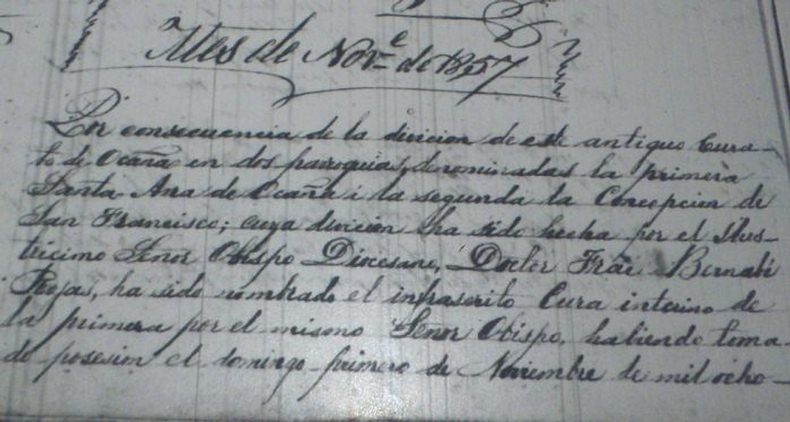 Mes de Nov.e de 1857
Por consecuencia de la division de este antiguo Cura-
to de Ocaña en dos parroquias, denominadas la primera
Santa Ana de Ocaña i la segunda la Concepcion de
San Francisco; cuya división ha sido hecha por el Ilus-
tricimo Señor Obispo Diocesano, Doctor Frai Bernabé
Rojas, ha sido nombrado el infrascrito Cura interino de
la primera por el mismo Señor Obispo, habiendo toma-
do posesion el domingo primero de Noviembre de mil ocho-